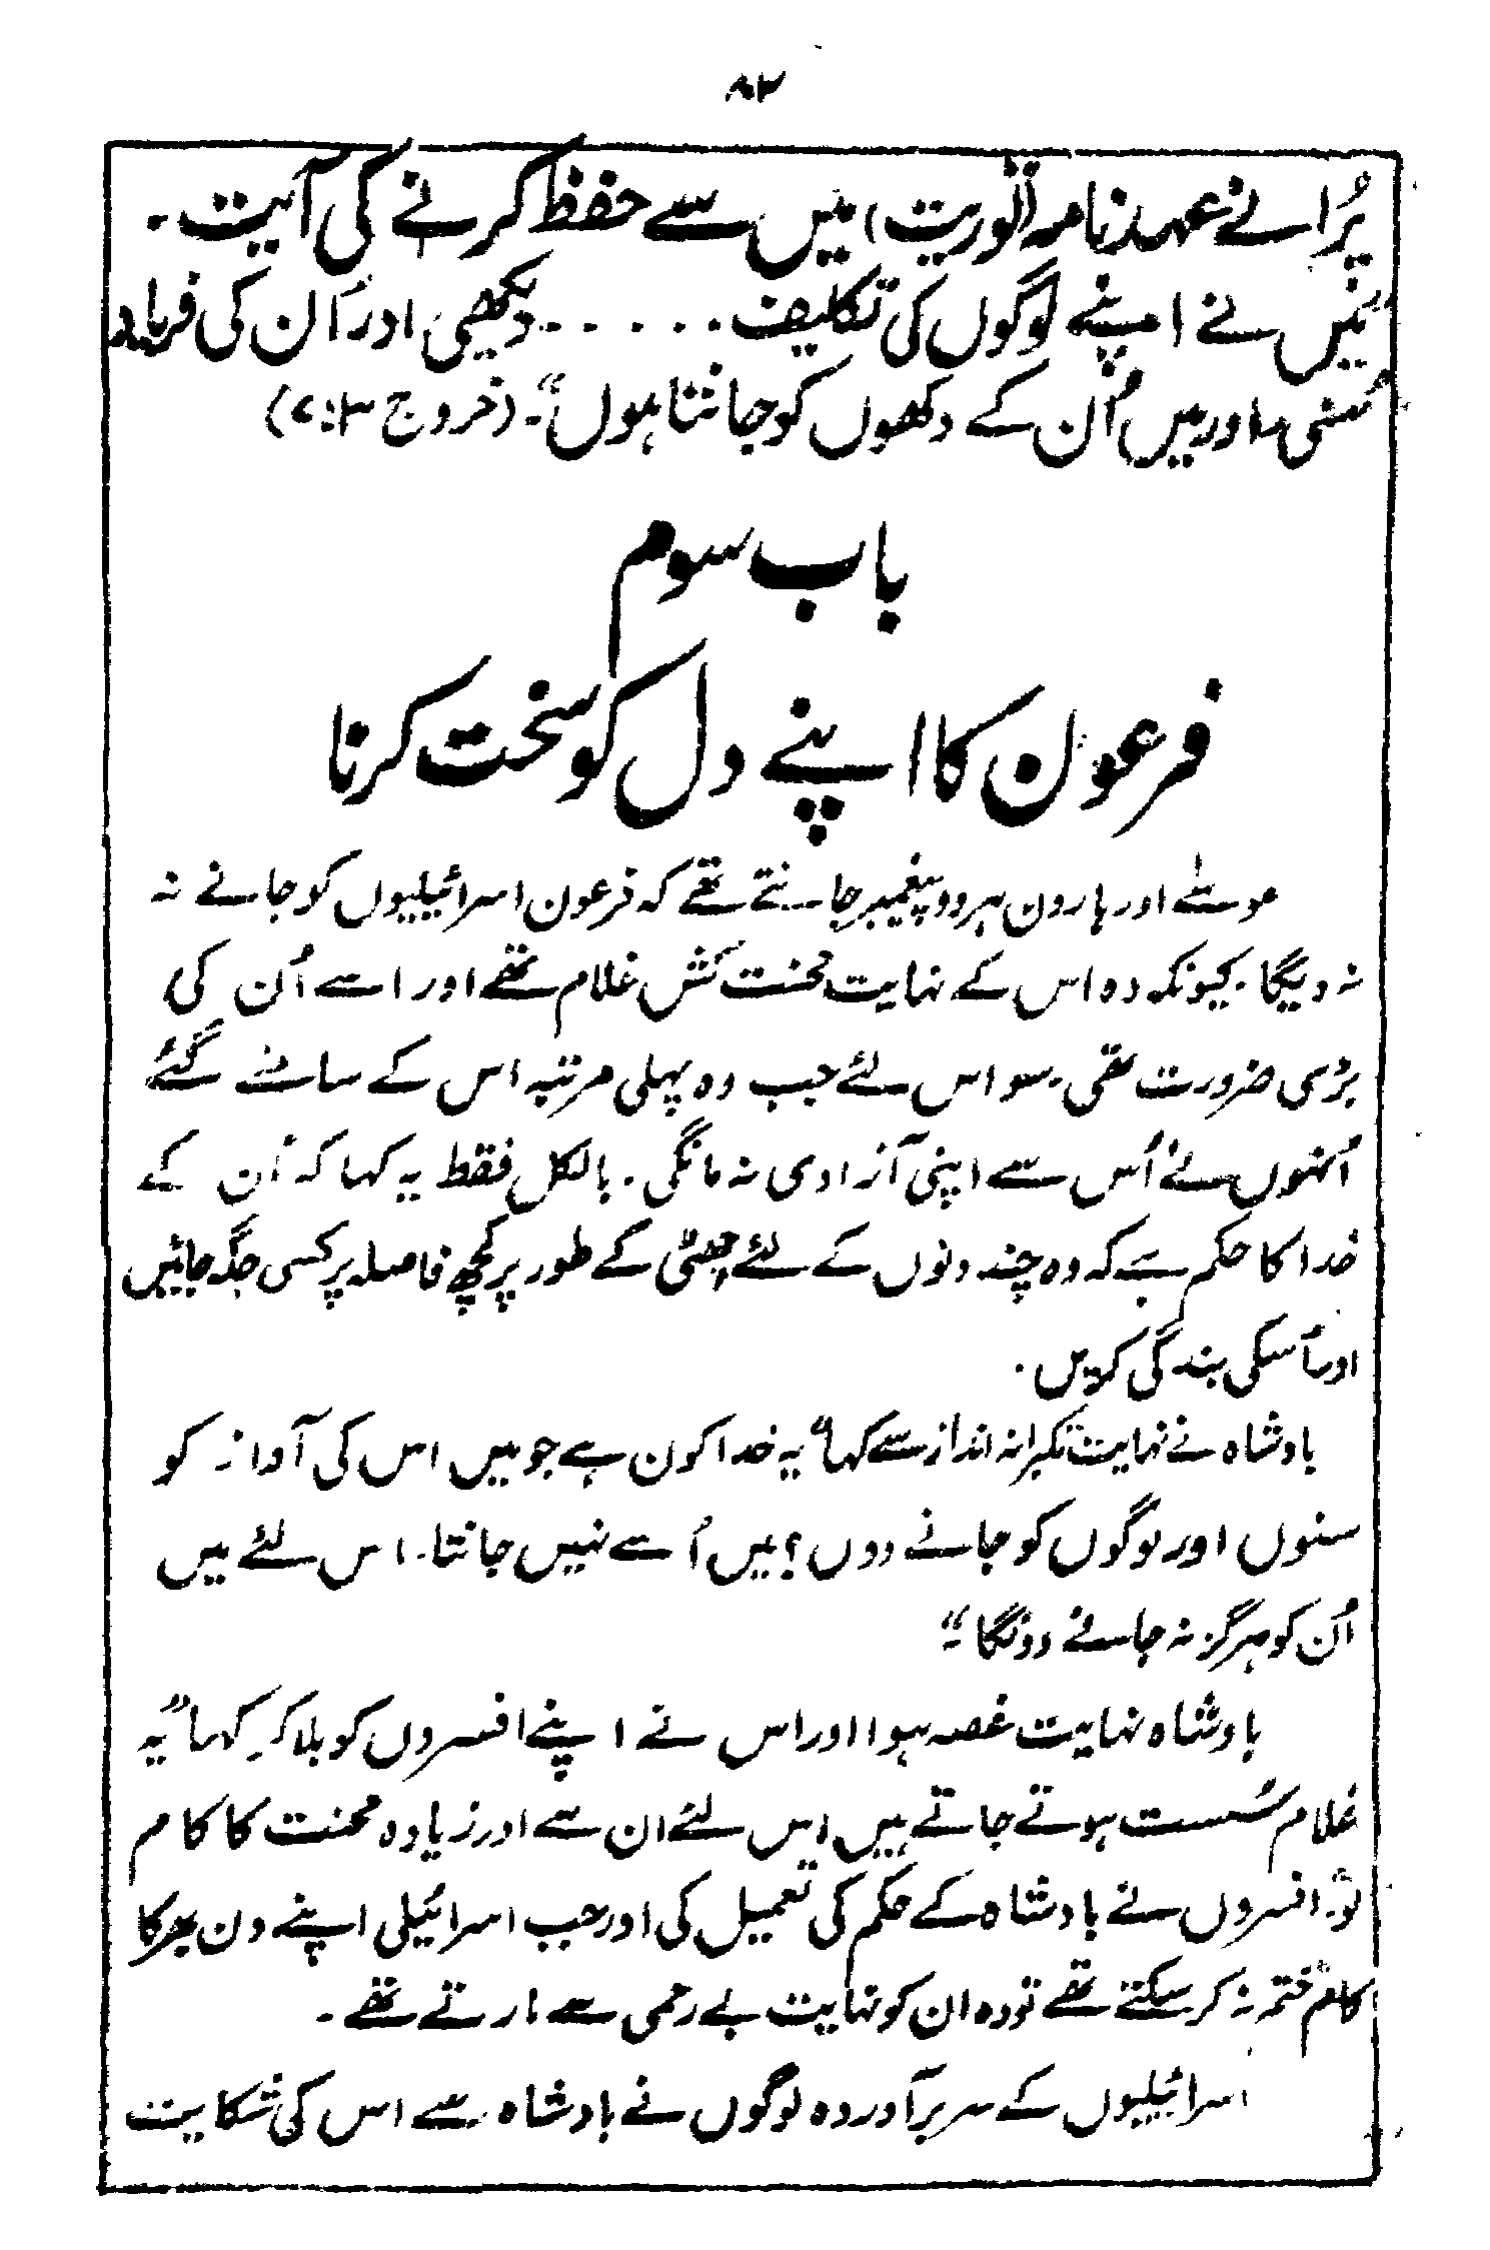 ۸۲
پُرانے عہدنامہ (توریت) میں سے حفظ کرنے کی آیت۔
"میَں نے اپنے لوگوں کی تکلیف . . . . . . دیکھی اور اُن کی فریاد
سُنی اور میں اُن کے دکھوں کو جانتا ہوں"۔ (خروج ۳:۷)
باب سوم
فرعون کا اپنے دل کو سخت کرنا
موسٰے اور ہارون ہر دو پیغمبر جانتے تھے کہ فرعون اسرائیلیوں کو جانے نہ
نہ دیگا۔ کیونکہ وہ اس کے نہایت محنت کش غلام تھے اور اسے اُن کی
بڑی ضرورت تھی۔ سو اس لئے جب وہ پہلی مرتبہ اس کے سامنے گئے
اُنہوں نے اُس سے اپنی آزادی نہ مانگی۔ بالکل فقط یہ کہا کہ اُن کے
خدا کا حکم ہَے کہ وہ چند دنوں کے لئے چھٹی کے طور پر کچھ فاصلہ پر کسی جگہ جائیں
اور اُسکی بندگی کریں۔
بادشاہ نے نہایت تکبرانہ انداز سے کہا "یہ خدا کون ہے جو میں اس کی آواز کو
سنوں اور لوگوں کو جانے دوں؟ میں اُسے نہیں جانتا۔ اس لئے میں
اُن کو ہرگز نہ جانے دونگا"۔
بادشاہ نہایت غصہ ہوا اور اس نے اپنے افسروں کو بلا کر کہا "یہ
غلام سُست ہوتے جاتے ہیں اس لئے ان سے اور زیادہ محنت کا کام
لو"۔ افسروں نے بادشاہ کے حکم کی تعمیل کی اور جب اسرائیلی اپنے دن بھر کا
کام ختم نہ کر سکتے تھے تو وہ ان کو نہایت بے رحمی سے مارتے تھے۔
اسرائیلیوں کے سربرآوردہ لوگوں نے بادشاہ سے اس کی شکایت